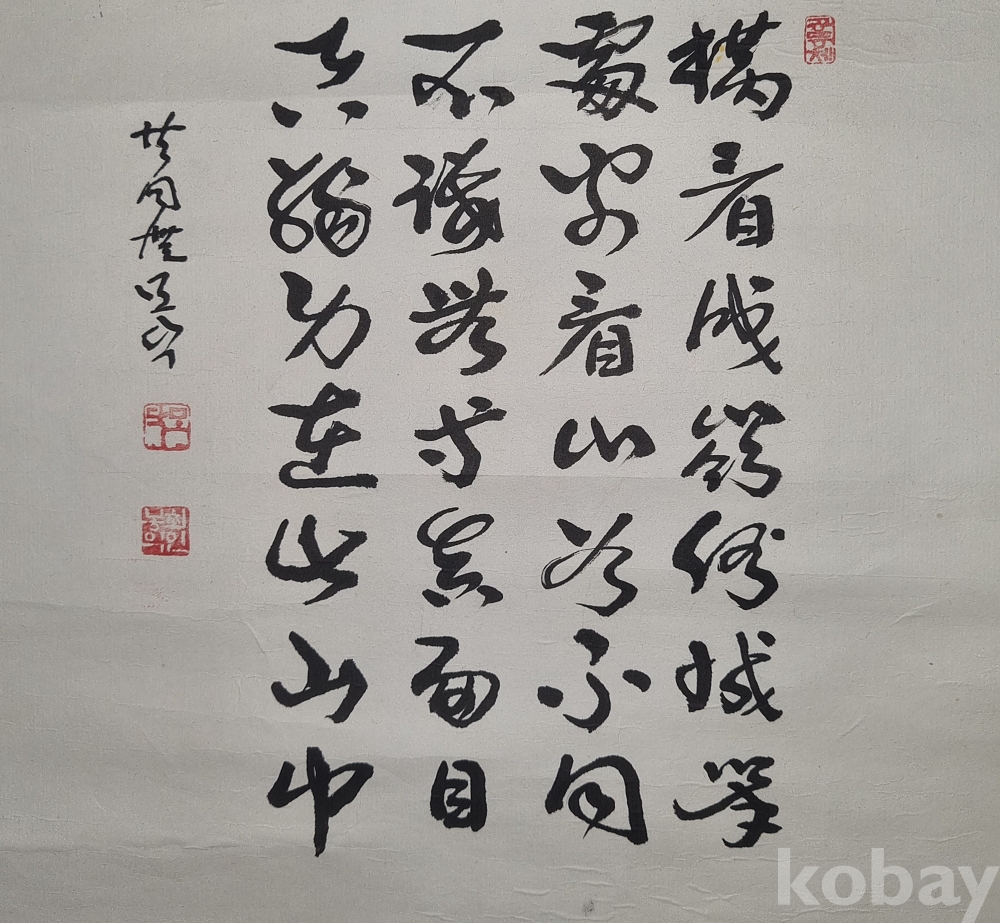 橫看成嶺側成峯
處處看山各不同
不識真面目
只緣身在此山中
kobay